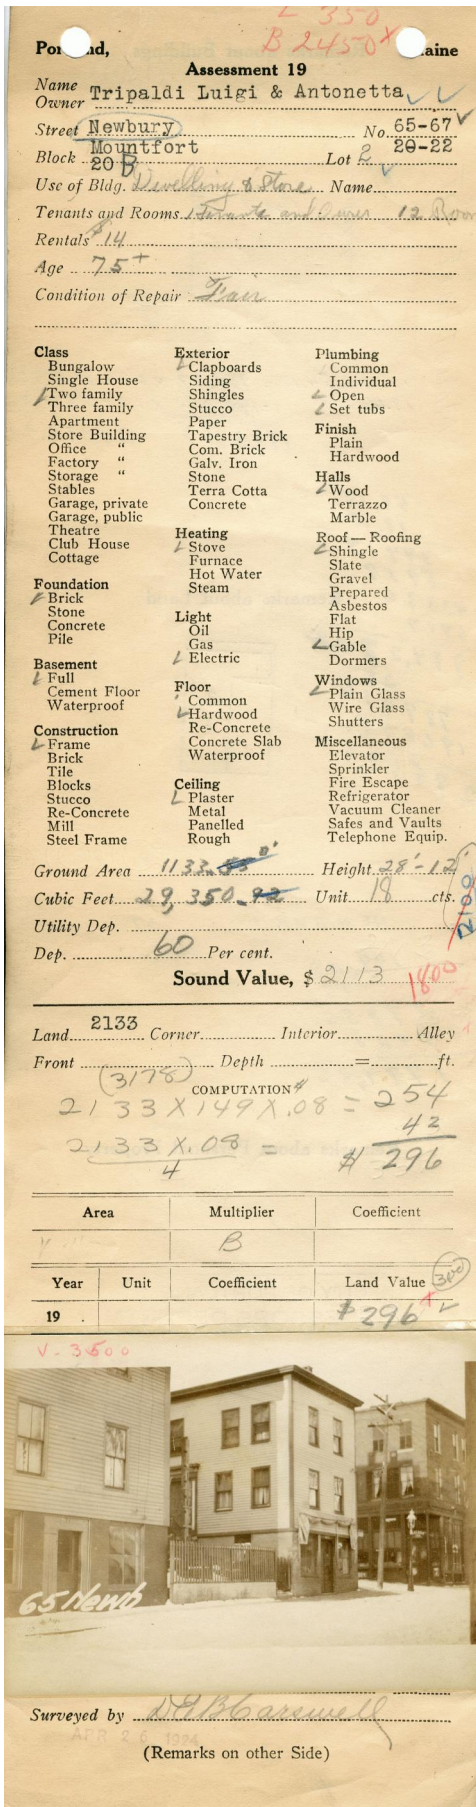 L 350
B 2450 x
Portland, Maine
Assessment 19
Name
Owner Tripaldi Luigi & Antonetta
Street Newbury No. 65-67
Mountfort 20-22
Block 20 B Lot 2
Use of Bldg. Dwelling & Store Name
Tenants and Rooms 1 Tenants and Owner 12 Room
Rentals $14
Age 75+
Condition of Repair Fair
Class
Bungalow
Single House
Two family
Three family
Apartment
Store Building
Office "
Factory "
Storage "
Stables
Garage, private
Garage, public
Theatre
Club House
Cottage
Foundation
Brick
Stone
Concrete
Pile
Basement
Full
Cement Floor
Waterproof
Construction
Frame
Brick
Tile
Blocks
Stucco
Re-Concrete
Mill
Steel Frame
Exterior
Clapboards
Siding
Shingles
Stucco
Paper
Tapestry Brick
Com. Brick
Galv. Iron
Stone
Terra Cotta
Concrete
Heating
Stove
Furnace
Hot Water
Steam
Light
Oil
Gas
Electric
Floor
Common
Hardwood
Re-Concrete
Concrete Slab
Waterproof
Ceiling
Plaster
Metal
Panelled
Rough
Plumbing
Common
Individual
Open
Set tubs
Finish
Plain
Hardwood
Halls
Wood
Terrazzo
Marble
Roof — Roofing
Shingle
Slate
Gravel
Prepared
Asbestos
Flat
Hip
Gable
Dormers
Windows
Plain Glass
Wire Glass
Shutters
Miscellaneous
Elevator
Sprinkler
Fire Escape
Refrigerator
Vacuum Cleaner
Safes and Vaults
Telephone Equip.
Ground Area 1133. Height 28'-12'
Cubic Feet 29,350. Unit 18 cts.
2100
Utility Dep.
Dep. 60 Per cent.
Sound Value, $ 2113 1800
Land 2133 Corner Interior Alley
Front Depth = ft.
(3178)
COMPUTATION
2133 X 149 X .08 = $254
42
2133 X .08 = $ 296
4
Area Multiplier Coefficient
B
Year Unit Coefficient Land Value 300
19 $296 x
V-3500
65 Newb
Surveyed by D E B Carswell
APR 2 1924
(Remarks on other Side)